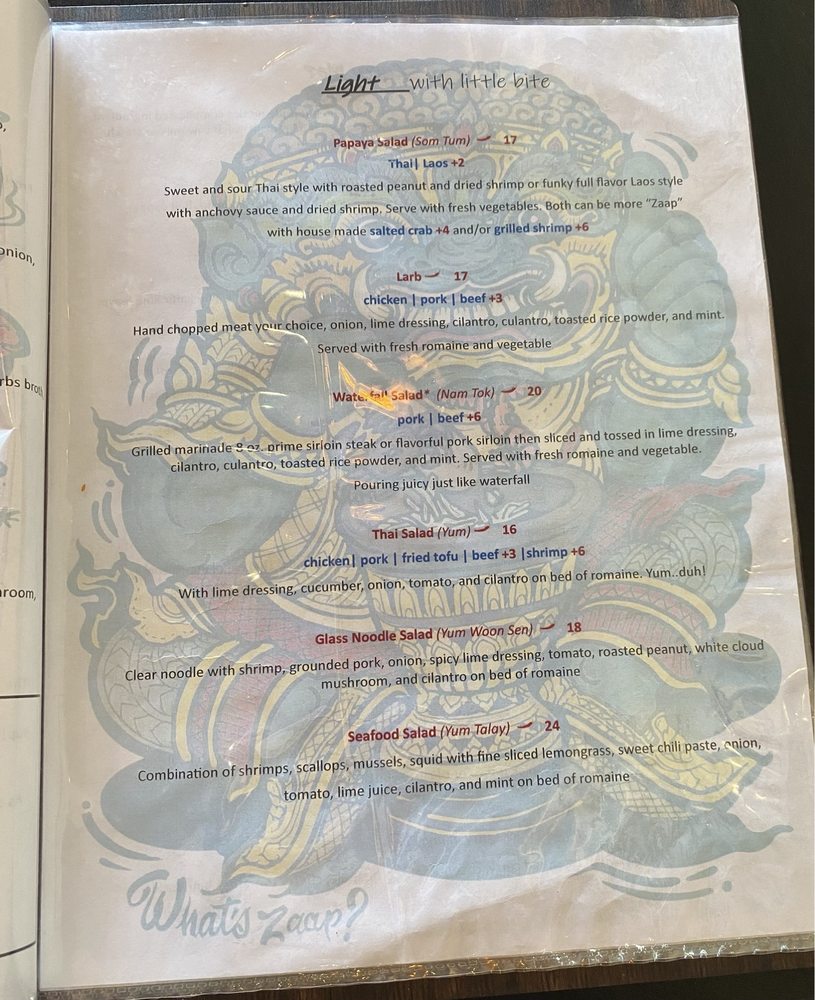 Light with little bite
Papaya Salad (Som Tum) 17
Thai| Laos +2
Sweet and sour Thai style with roasted peanut and dried shrimp or funky full flavor Laos style
with anchovy sauce and dried shrimp. Serve with fresh vegetables. Both can be more “Zaap”
with house made salted crab +4 and/or grilled shrimp +6
Larb 17
chicken | pork | beef +3
Hand chopped meat your choice, onion, lime dressing, cilantro, culantro, toasted rice powder, and mint.
Served with fresh romaine and vegetable
Waterfall Salad* (Nam Tok) 20
pork | beef +6
Grilled marinade 8 oz. prime sirloin steak or flavorful pork sirloin then sliced and tossed in lime dressing,
cilantro, culantro, toasted rice powder, and mint. Served with fresh romaine and vegetable.
Pouring juicy just like waterfall
Thai Salad (Yum) 16
chicken| pork | fried tofu | beef +3 |shrimp +6
With lime dressing, cucumber, onion, tomato, and cilantro on bed of romaine. Yum..duh!
Glass Noodle Salad (Yum Woon Sen) 18
Clear noodle with shrimp, grounded pork, onion, spicy lime dressing, tomato, roasted peanut, white cloud
mushroom, and cilantro on bed of romaine
Seafood Salad (Yum Talay) 24
Combination of shrimps, scallops, mussels, squid with fine sliced lemongrass, sweet chili paste, onion,
tomato, lime juice, cilantro, and mint on bed of romaine
What's Zaap?